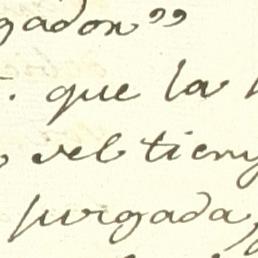 gadon”
. que la
el tiemp
purgada,